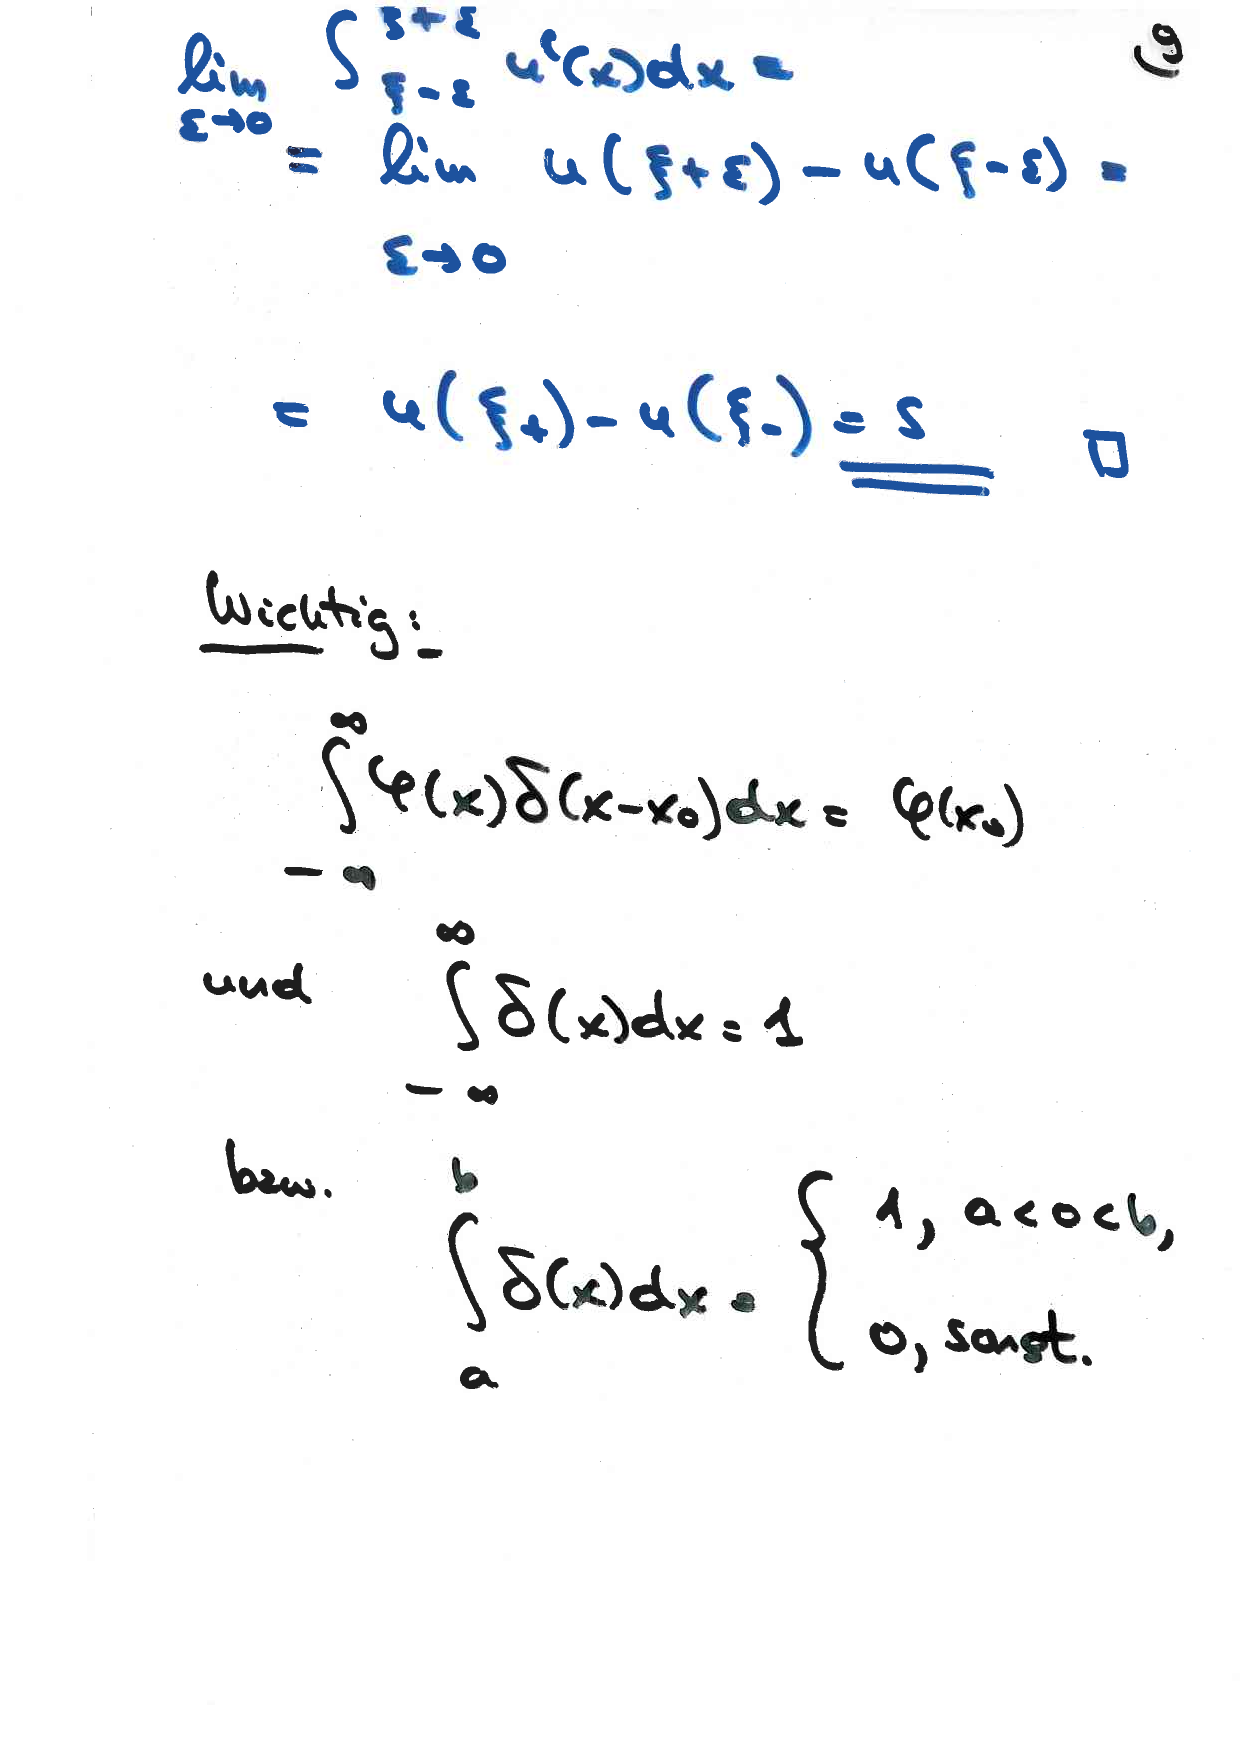 9
lim_{ε→0} ∫_{ξ-ε}^{ξ+ε} u'(x)dx =
= lim_{ε→0} u(ξ+ε) - u(ξ-ε) =
= u(ξ+) - u(ξ-) = s □
Wichtig:
∫_{-∞}^{∞} φ(x)δ(x-x₀)dx = φ(x₀)
und ∫_{-∞}^{∞} δ(x)dx = 1
bzw. ∫_{a}^{b} δ(x)dx = { 1, a<0<b,
0, sonst.